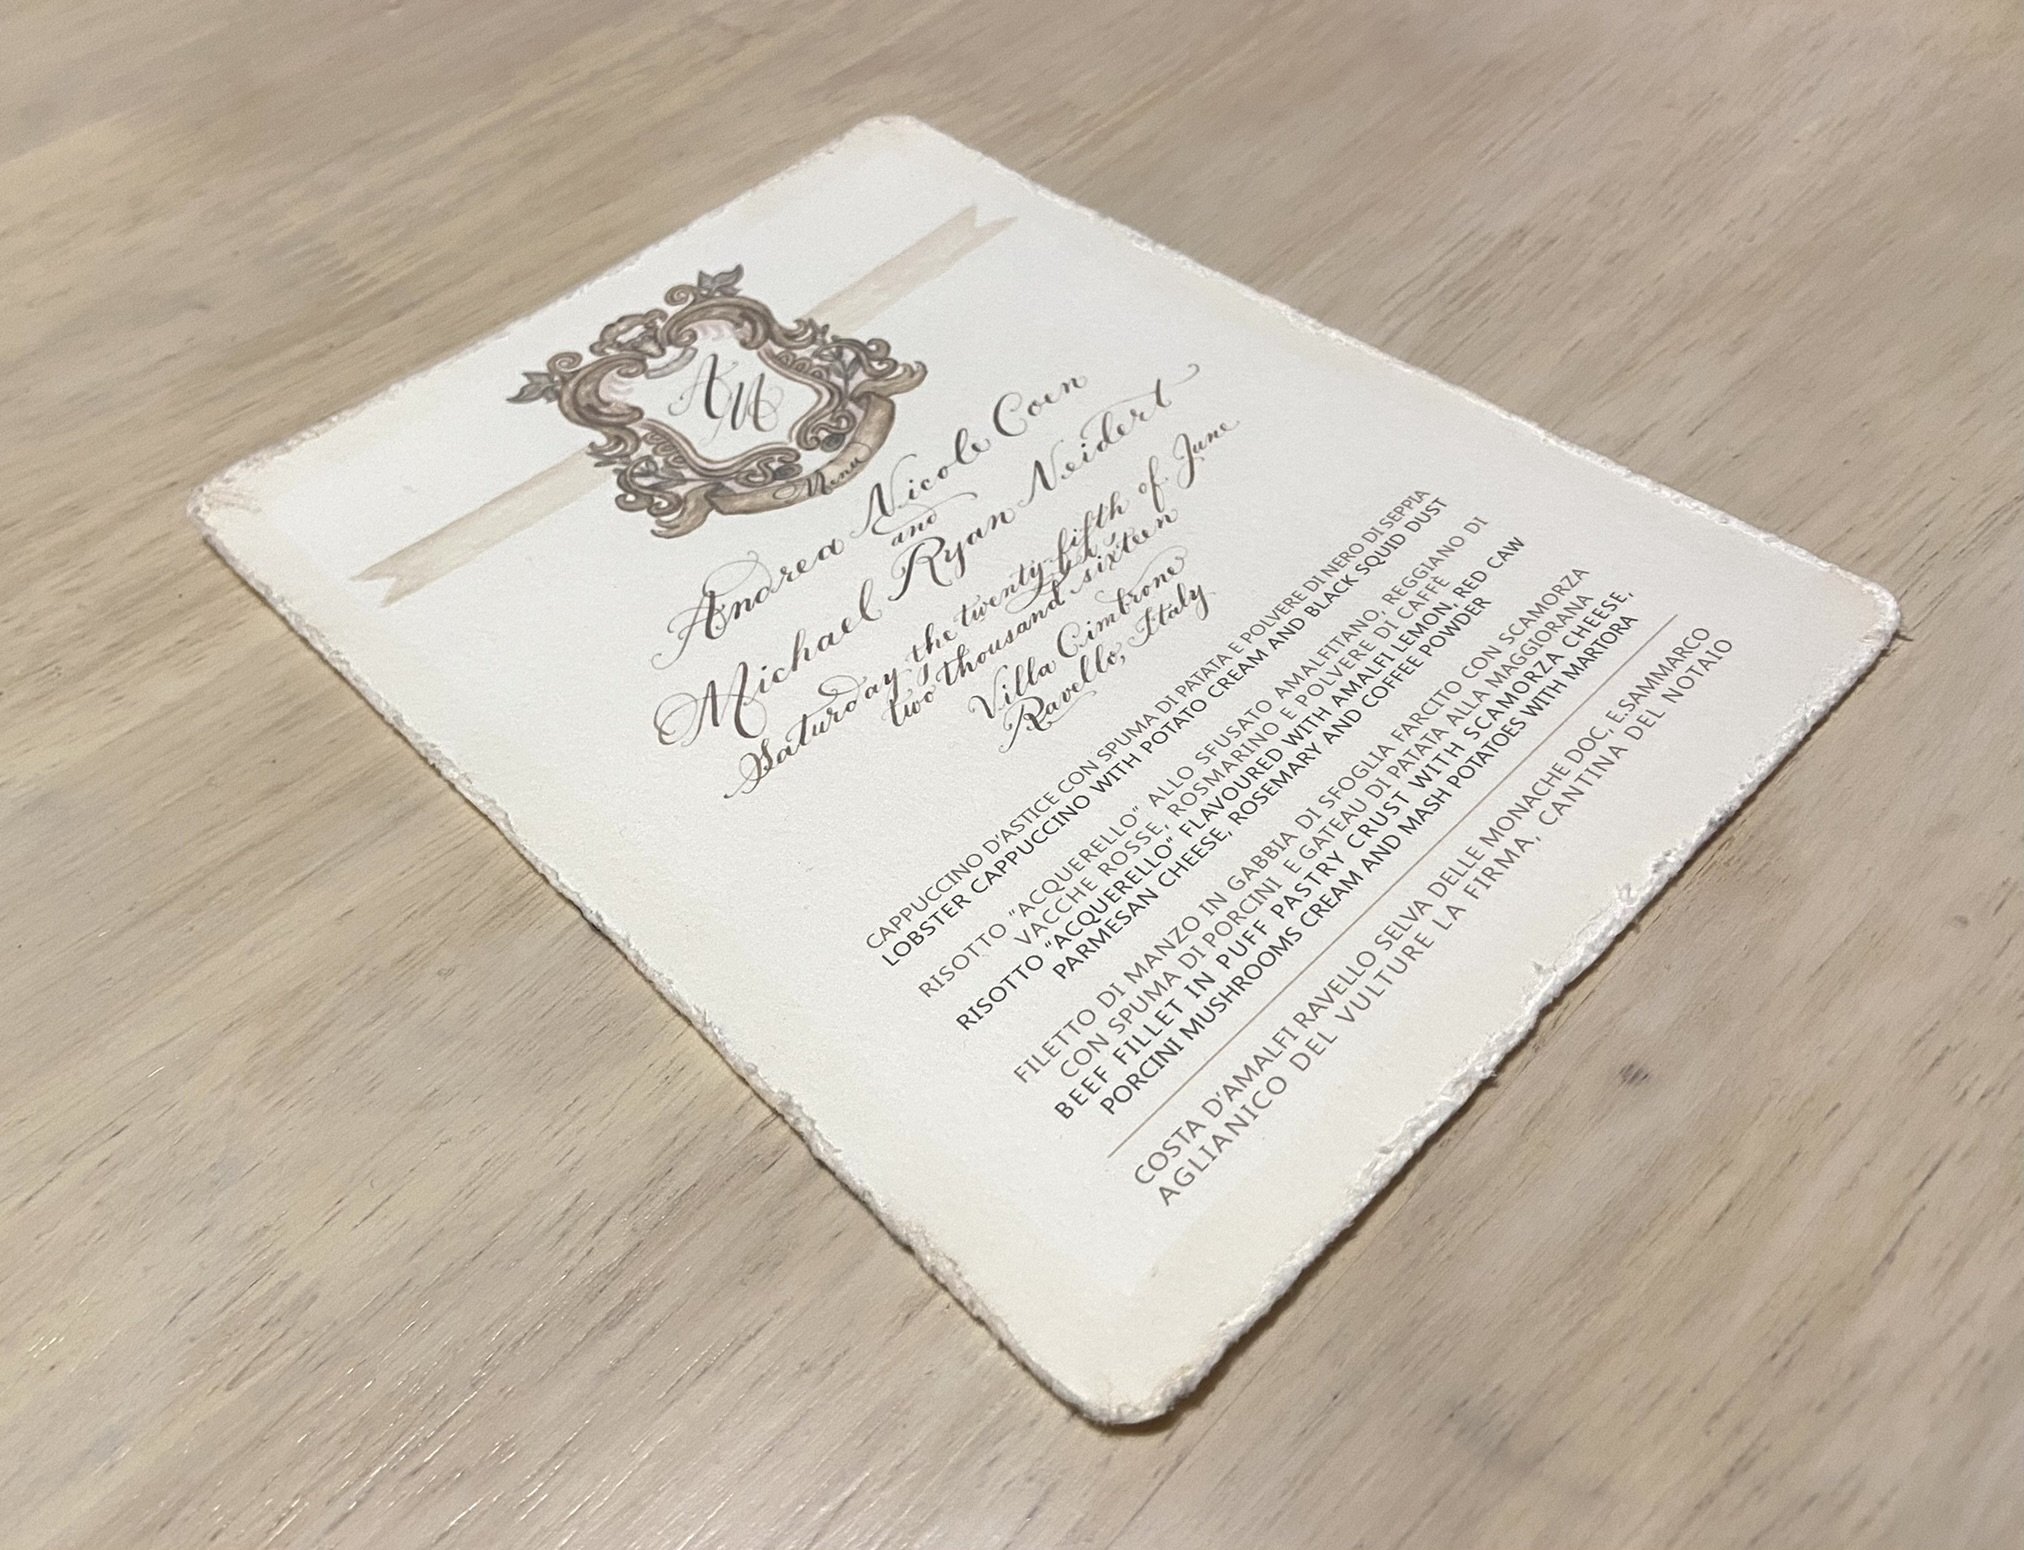 A M
Menu
Andrea Nicole Coen
and
Michael Ryan Neidert
Saturday the twenty-fifth of June
two thousand sixteen
Villa Cimbrone
Ravello, Italy
CAPPUCCINO D'ASTICE CON SPUMA DI PATATA E POLVERE DI NERO DI SEPPIA
LOBSTER CAPPUCCINO WITH POTATO CREAM AND BLACK SQUID DUST
RISOTTO "ACQUERELLO" ALLO SFUSATO AMALFITANO, REGGIANO DI
VACCHE ROSSE, ROSMARINO E POLVERE DI CAFFÈ
RISOTTO "ACQUERELLO" FLAVOURED WITH AMALFI LEMON, RED CAW
PARMESAN CHEESE, ROSEMARY AND COFFEE POWDER
FILETTO DI MANZO IN GABBIA DI SFOGLIA FARCITO CON SCAMORZA
CON SPUMA DI PORCINI E GATEAU DI PATATA ALLA MAGGIORANA
BEEF FILLET IN PUFF PASTRY CRUST WITH SCAMORZA CHEESE,
PORCINI MUSHROOMS CREAM AND MASH POTATOES WITH MARTORA
COSTA D'AMALFI RAVELLO SELVA DELLE MONACHE DOC, E.SAMMARCO
AGLIANICO DEL VULTURE LA FIRMA, CANTINA DEL NOTAIO